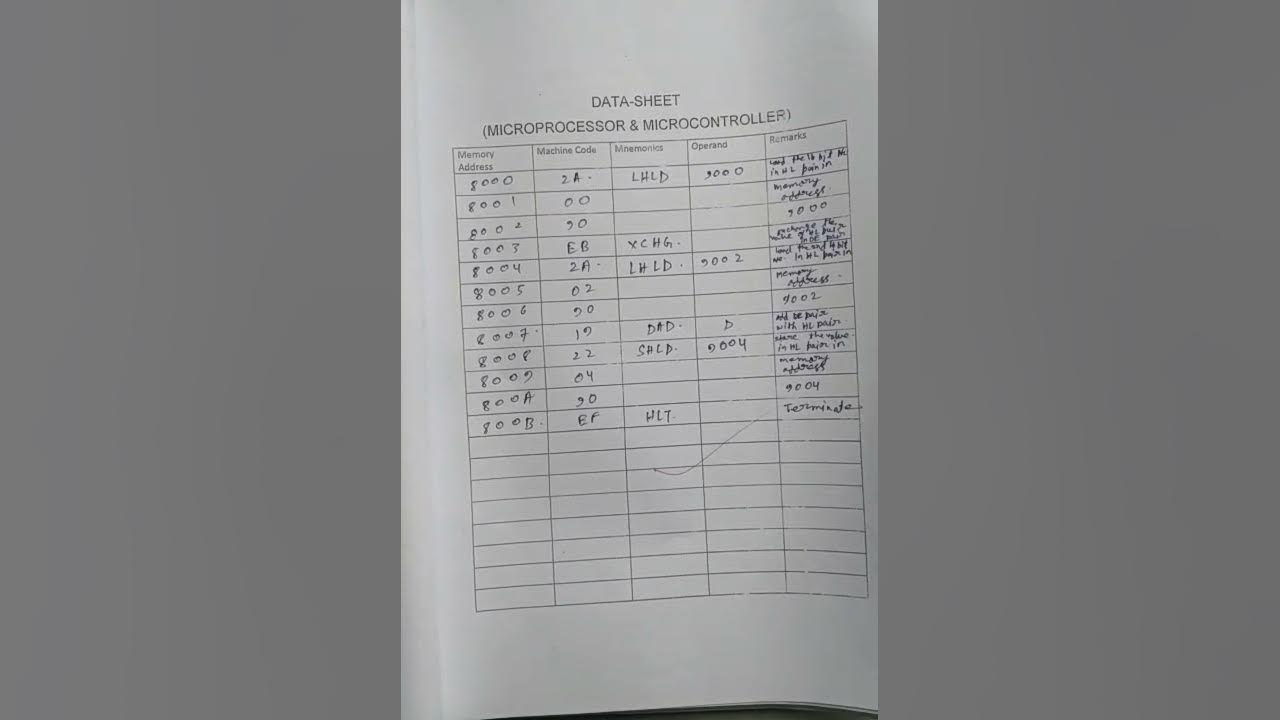 DATA-SHEET
(MICROPROCESSOR & MICROCONTROLLER)
Memory Address Machine Code Mnemonics Operand Remarks
8000 2A. LHLD 9000 Load the 16 bit No. in HL pair in
8001 00 memory address.
8002 90 9000
8003 EB XCHG. exchange the value of HL pair in DE pair
8004 2A. LHLD. 9002 Load the 2nd 16 bit No. in HL pair in
8005 02 memory address.
8006 90 9002
8007. 19 DAD. D Add DE pair with HL pair.
8008 22 SHLD. 9004 store the value in HL pair in
8009 04 memory address
800A 90 9004
800B. EF HLT. Terminate.